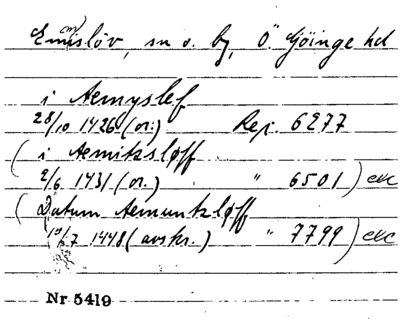 Emislöv, sn o. by, Ö. Göinge hd
i Aemyslef
28/10 1426 (or.) Rep. 6277
(i Aemitsløff
2/6 1431 (or.) " 6501) etc
(Datum Aemuntsløff
10/7 1448 (avskr.) " 7799) etc
Nr 5419